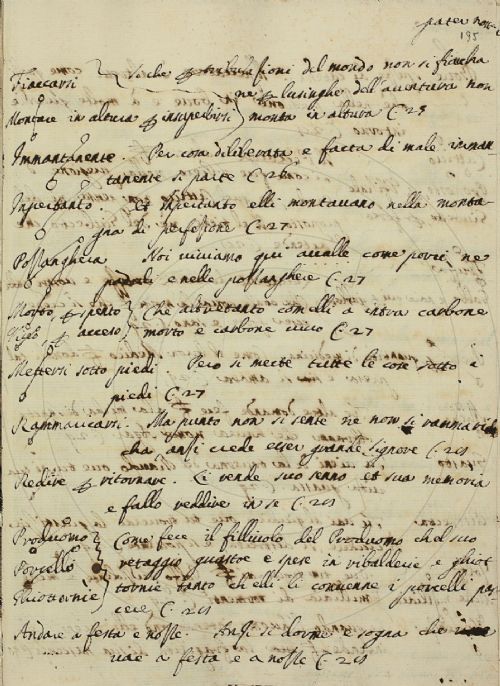 pater nost
195
Fiaccarsi } si che tribulationi del mondo non si fiaccha
ne lusinghe dell'aventura non
Montare in altura per insuperbirsi } monta in altura C. 25
Immantanente. Per cosa diliberata e facta di male imman-
tanente si parte C. 26
Inpercianto. Et inpercianto elli montavano nella monta-
gna di perfesione C. 27
Possanghera Noi viviamo qui avalle come porci, ne
padali e nelle possanghere C. 27
Morto per spento } Che altretanto com elli a intra carbone
Vivo per acceso } morto e carbone vivo C. 27
Mettersi sotto piedi. Pero si mecte tutte le cose sotto i
piedi C. 27
Rammaricarsi. Ma punto non si sente ne non si rammarich
ha, anzi crede esser grande signore C.
Redire per ritornare. Li rende suo senno et sua memoria
e fallo reddire in se C.
Produomo } Come fece il figliuolo del Produomo che'l suo
Porcello } retaggio guastoe e spese in ribalderie e ghiot
Ghiottornie } tornie tanto ch'elli li convenne i porcelli pa
scere, C.
Andare a festa e nosse. Anzi si dorme e sogna che
vae a festa e a nosse C.